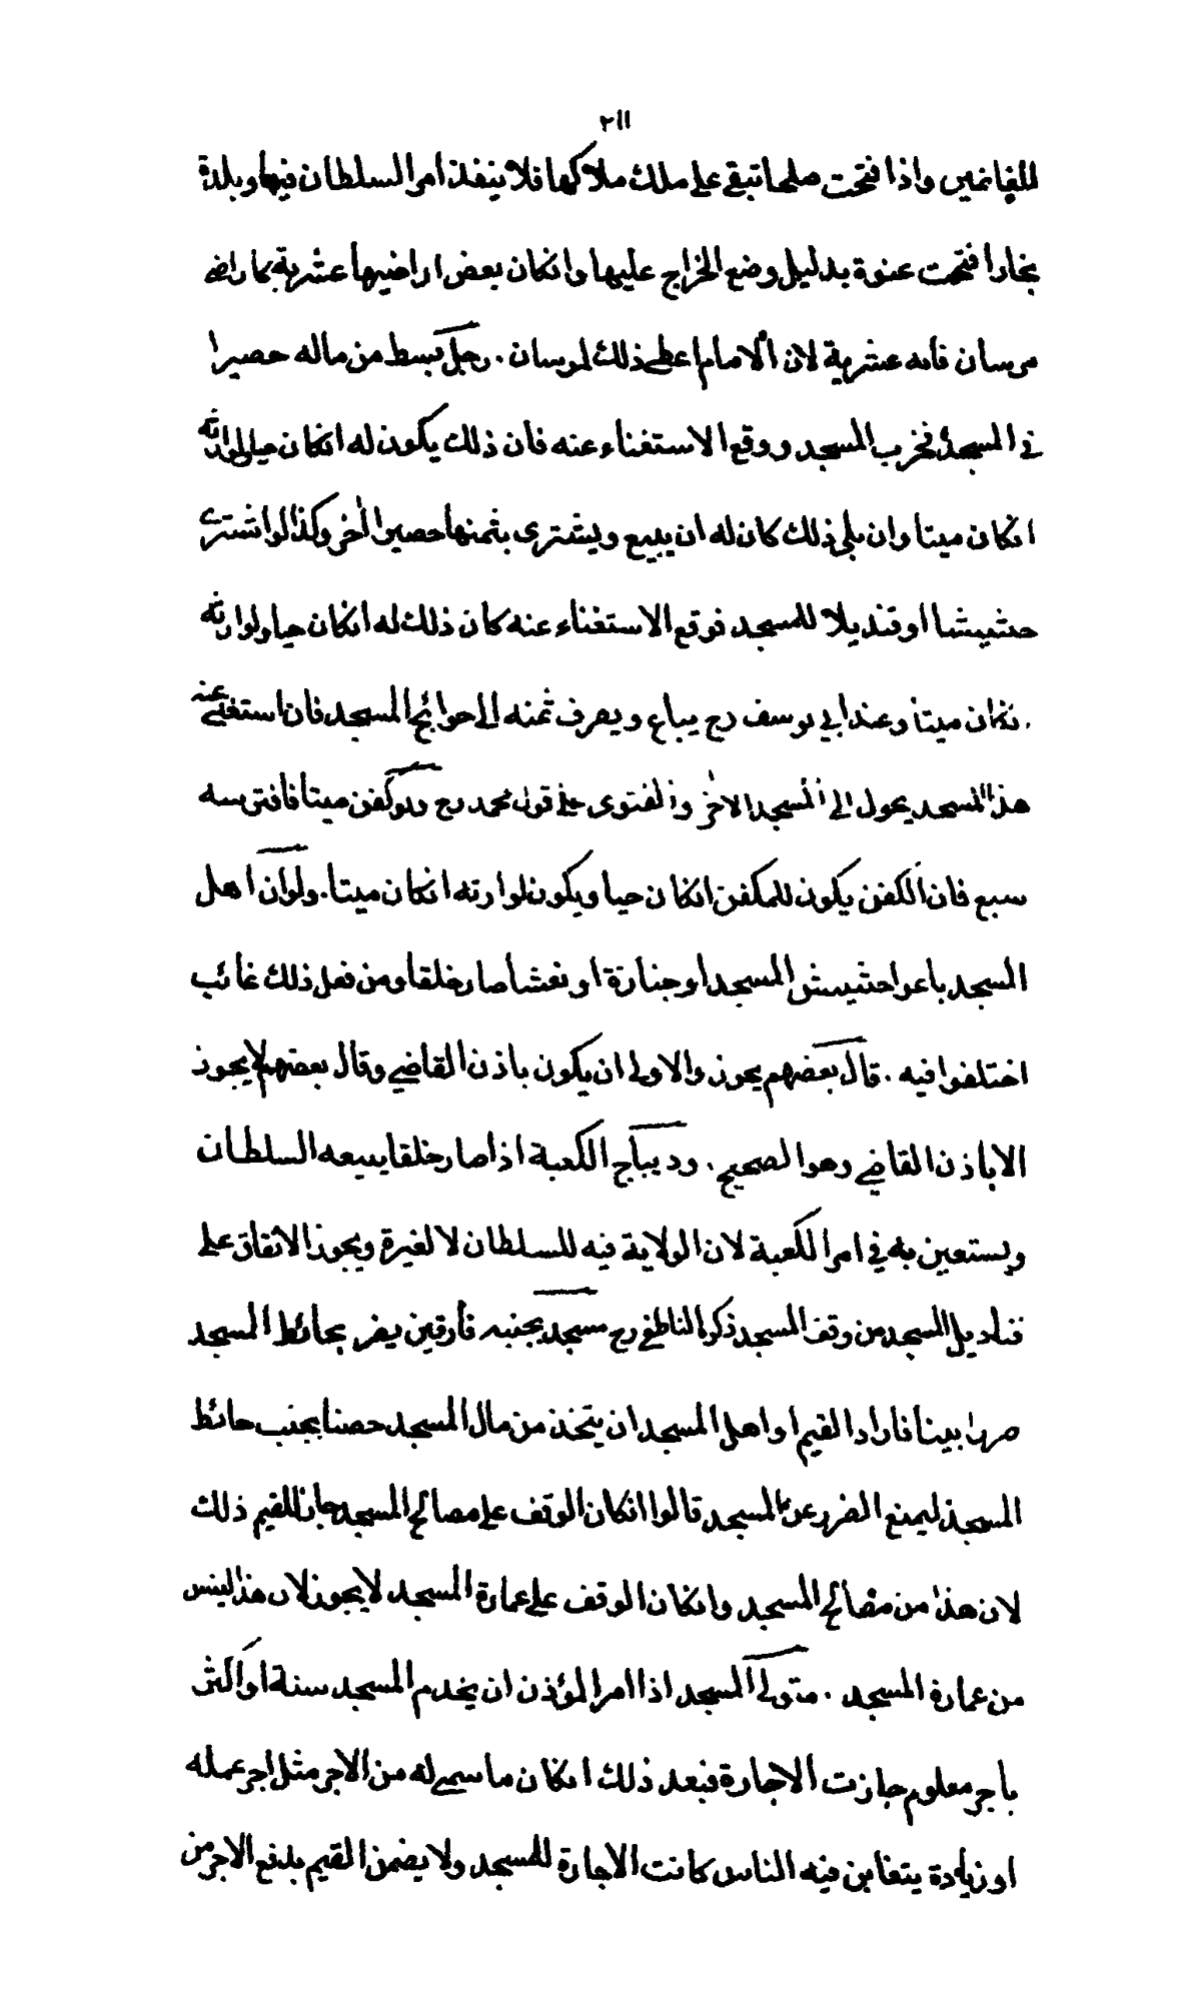 ٢١١
للغانمين واذا فتحت صلحا تبقى على ملك ملاكها فلا ينفذ امر السلطان فيها وبلدة
بخارا فتحت عنوة بدليل وضع الخراج عليها وانكان بعض اراضيها عشرية كاراضي
مرسان فانه عشرية لان الامام اعطى ذلك لمرسان . رجل بسط من ماله حصيرا
في المسجد فخرب المسجد ووقع الاستغناء عنه فان ذلك يكون له انكان حيا ولوارثه
انكان ميتا وان بلي ذلك كان له ان يبيع ويشترى بثمنها حصيرا اخر وكذا لو اشترى
حشيشا او قنديلا للمسجد فوقع الاستغناء عنه كان ذلك له انكان حيا ولوارثه
انكان ميتا وعند ابي يوسف رح يباع ويصرف ثمنه الى حوائج المسجد فان استغنى عنه
هذا المسجد يحول الى المسجد الاخر والفتوى على قول محمد رح ولو كفن ميتا فافترسه
سبع فان الكفن يكون للمكفن انكان حيا ويكون لوارثه انكان ميتا . ولو ان اهل
المسجد باعوا حشيش المسجد او جنازة او نعشا صار خلقا ومن فعل ذلك غائب
اختلفوا فيه . قال بعضهم يجوز والاولى ان يكون باذن القاضي وقال بعضهم لا يجوز
الا باذن القاضي وهو الصحيح . وديباج الكعبة اذا صار خلقا يبيعه السلطان
ويستعين به في امر الكعبة لان الولاية فيه للسلطان لا لغيرة ويجوز الانفاق على
قناديل المسجد من وقف المسجد ذكره الناطفي رح مسجد بجنبه فارقين يضر بحائط المسجد
ضررا بينا فاراد القيم او اهل المسجد ان يتخذ من مال المسجد حصنا بجنب حائط
المسجد ليمنع الضرر عن المسجد قالوا انكان الوقف على مصالح المسجد جاز للقيم ذلك
لان هذا من مصالح المسجد وانكان الوقف على عمارة المسجد لا يجوز لان هذا ليس
من عمارة المسجد . متولى المسجد اذا امر المؤذن ان يخدم المسجد سنة او اكثر
باجر معلوم جازت الاجارة فبعد ذلك انكان ما سمى له من الاجر مثل اجر عمله
او زيادة يتغابن فيه الناس كانت الاجارة للمسجد ولا يضمن القيم بدفع الاجر من